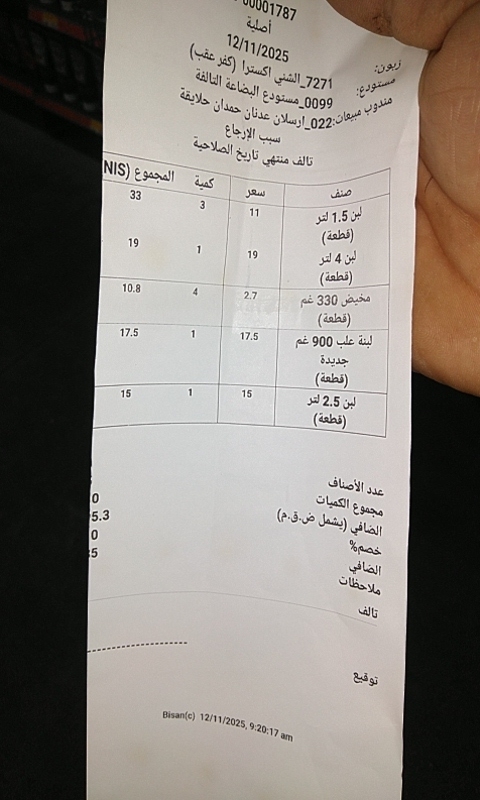 00001787
أصلية
12/11/2025
زبون: 7271_الشني اكسترا (كفر عقب)
مستودع: 0099_مستودع البضاعة التالفة
مندوب مبيعات: 022_ارسلان عدنان حمدان حلايقة
سبب الإرجاع
تالف منتهي تاريخ الصلاحية
صنف سعر كمية المجموع (NIS
لبن 1.5 لتر 11 3 33
(قطعة)
لبن 4 لتر 19 1 19
(قطعة)
مخيض 330 غم 2.7 4 10.8
(قطعة)
لبنة علب 900 غم 17.5 1 17.5
جديدة
(قطعة)
لبن 2.5 لتر 15 1 15
(قطعة)
عدد الأصناف
مجموع الكميات 0
الضافي (يشمل ض.ق.م) 5.3
خصم% 0
الضافي 5
ملاحظات
تالف
توقيع
Bisan(c) 12/11/2025, 9:20:17 am